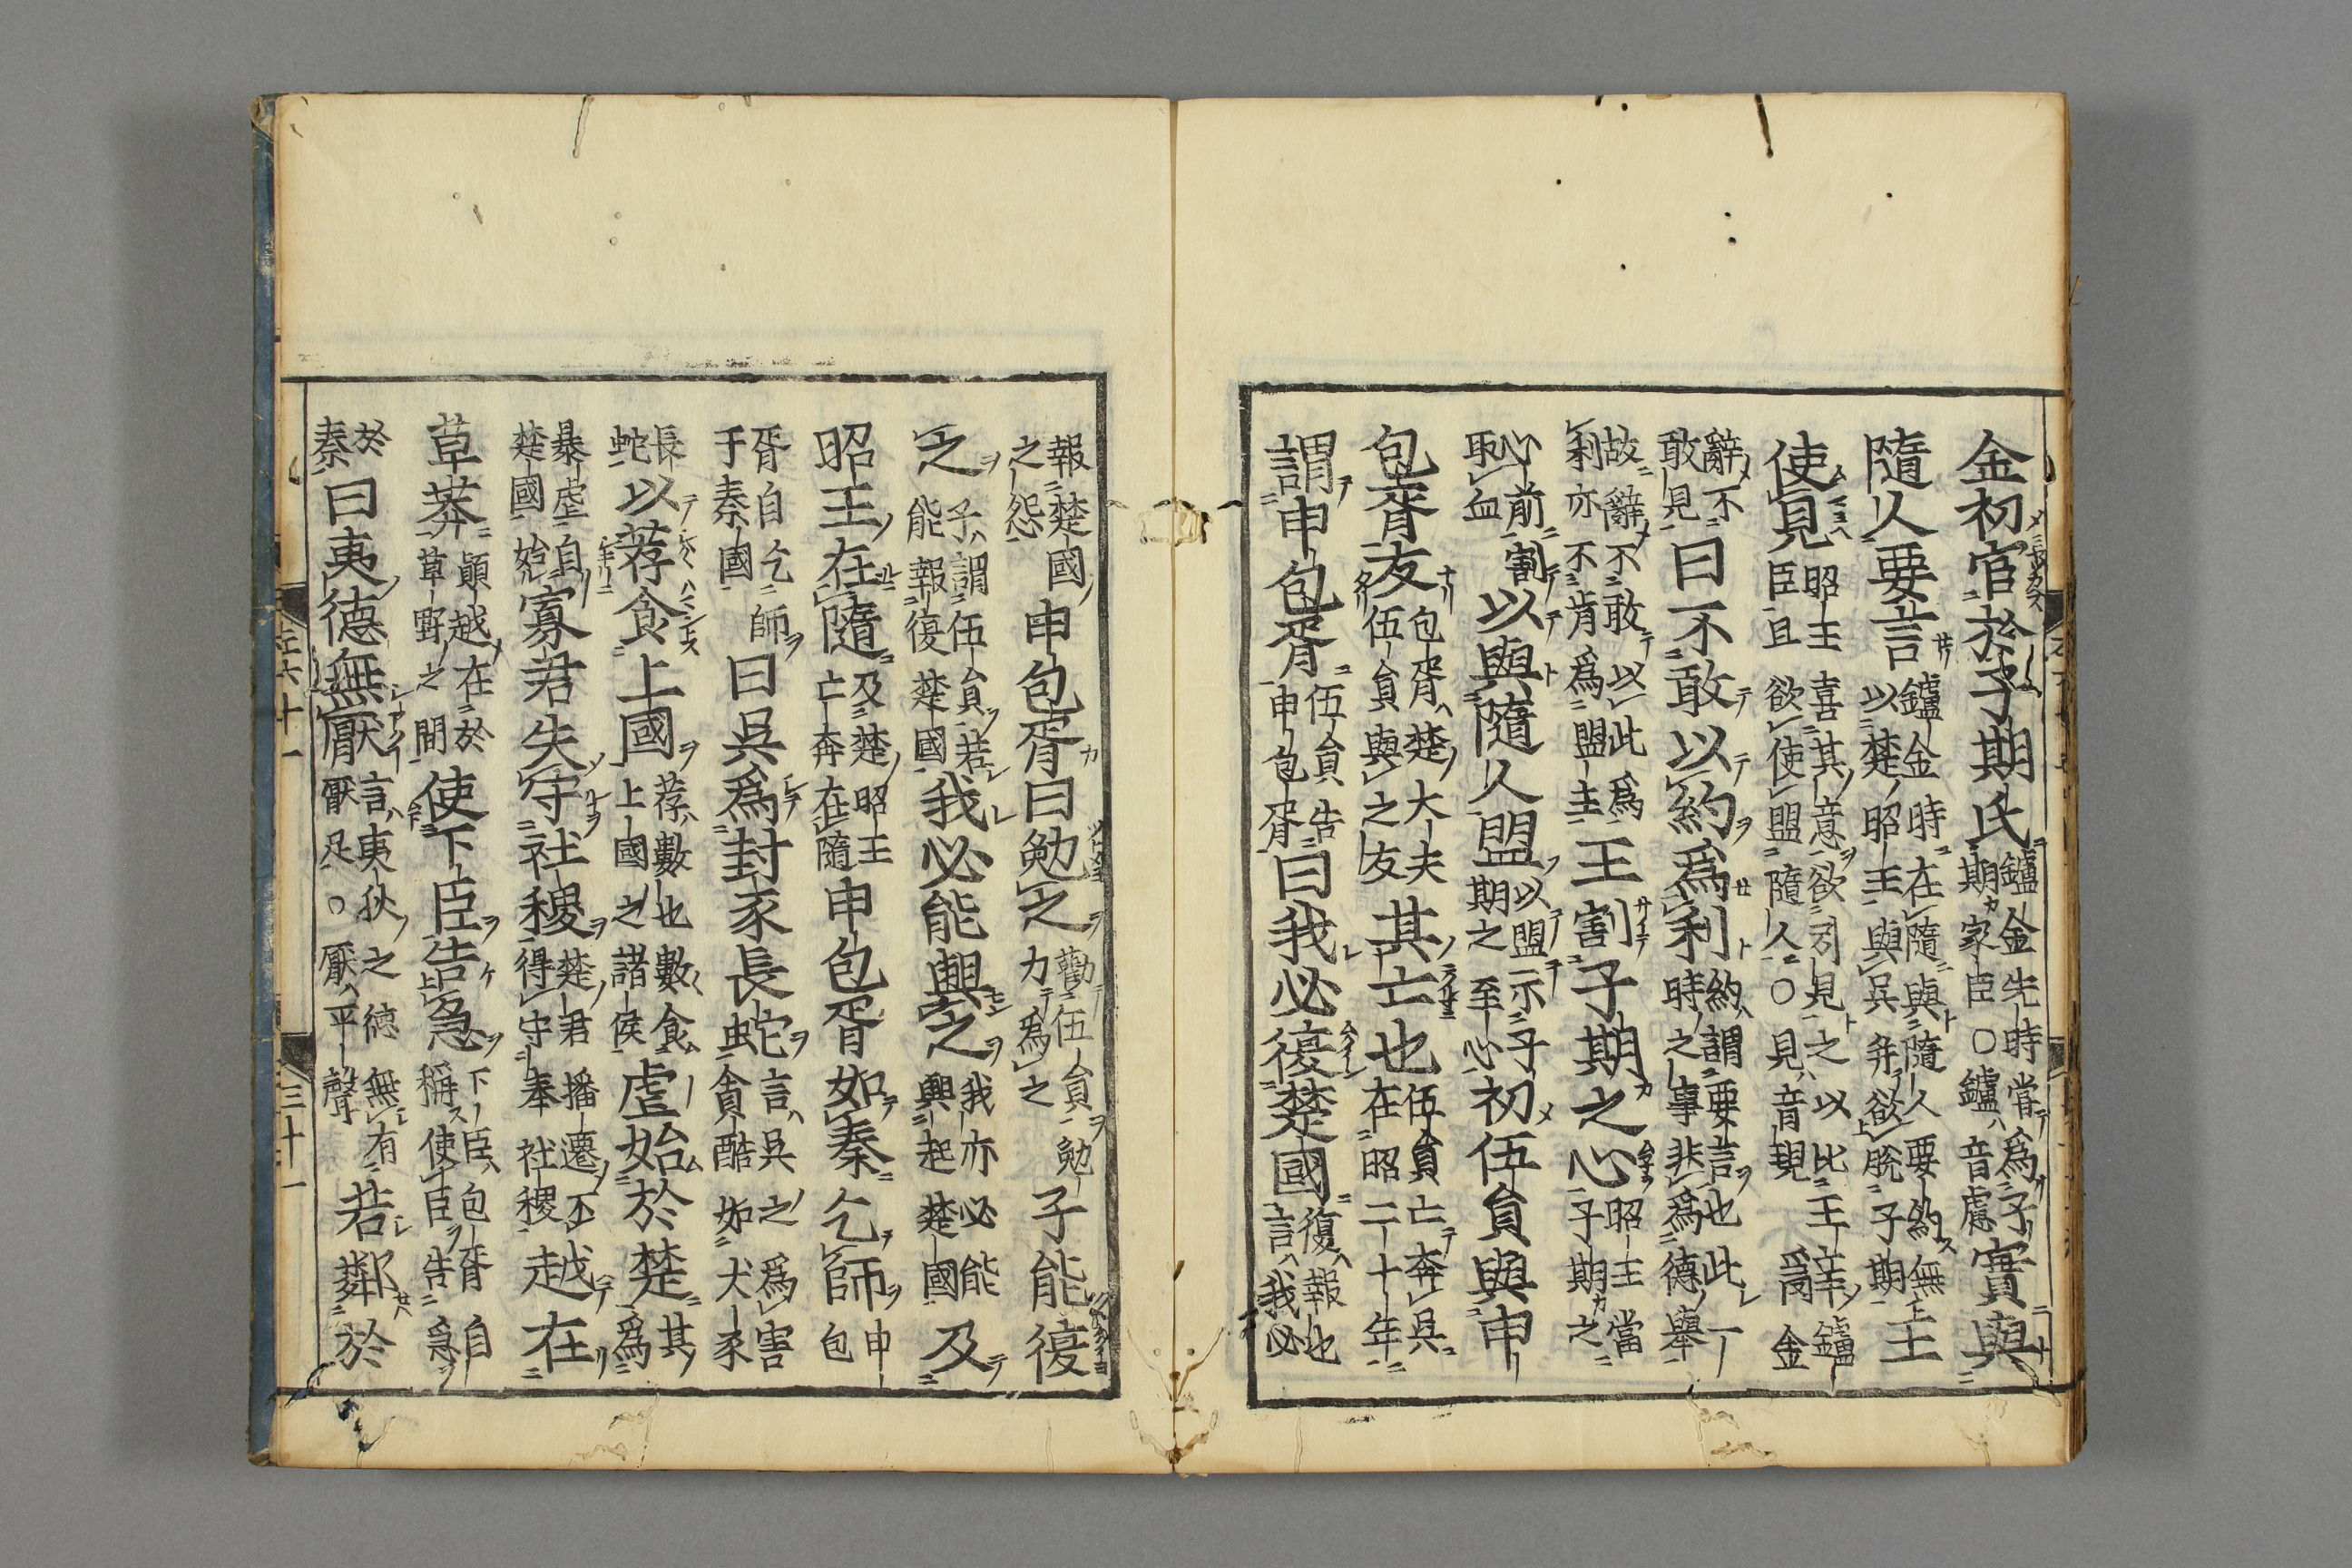 金初官於子期氏鑪金先時嘗爲子期家臣○鑪音慮實與
隨人要言鑪金時在隨與隨人要約無以楚昭王與吳并欲脫子期王
使見昭王喜其意欲引見之以比王臣且欲使盟隨人○見音現辭鑪金
辭不敢見曰不敢以約爲利約謂要言也此一時之事非爲德舉
故辭不敢以此爲利亦不肯爲盟主王割子期之心昭王當子期之
心前割取血以與隨人盟以盟示子期之至心初伍員與申
包胥友包胥楚大夫伍員與之友其亡也伍員亡奔吳在昭二十年
謂申包胥伍員告申包胥曰我必復楚國復報也言我必
報楚國之怨申包胥曰勉之勸伍員勉力爲之子能復
之子謂伍員若能報復楚國我必能興之我亦必能興起楚國及
昭王在隨及楚昭王亡奔在隨申包胥如秦乞師申包
胥自乞師于秦國曰吳爲封豕長蛇言吳之爲害貪酷如犬豕
長蛇以荐食上國荐數也數食上國之諸侯虐始於楚其爲
暴虐自楚國始寡君失守社稷楚君播遷不得守奉社稷越在
草莽顛越在於草野之間使下臣告急下臣包胥自稱使臣告急
於秦曰夷德無厭言夷狄之德無有厭足○厭平聲若鄰於
左六十一
三十一